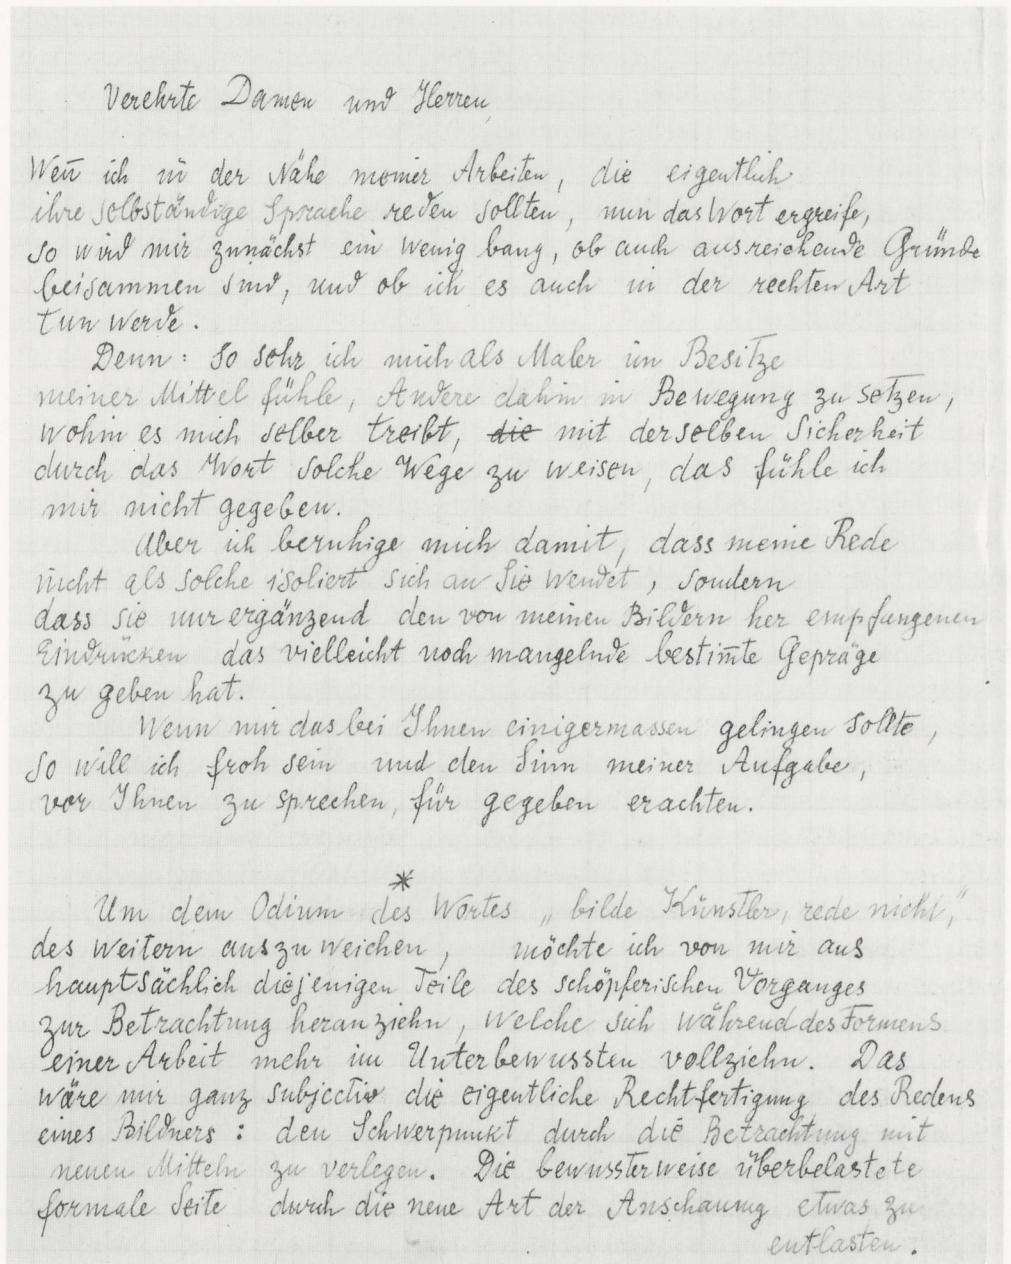 Verehrte Damen und Herren,
Weñ ich in der Nähe meiner Arbeiten, die eigentlich
ihre selbständige Sprache reden sollten, nun das Wort ergreife,
so wird mir zunächst ein wenig bang, ob auch ausreichende Gründe
beisammen sind, und ob ich es auch in der rechten Art
tun werde.
Denn: so sehr ich mich als Maler im Besitze
meiner Mittel fühle, Andere dahin in Bewegung zu setzen,
wohin es mich selber treibt, die mit derselben Sicherheit
durch das Wort solche Wege zu weisen, das fühle ich
mir nicht gegeben.
Aber ich beruhige mich damit, dass meine Rede
nicht als solche isoliert sich an Sie wendet, sondern
dass sie nur ergänzend den von meinen Bildern her empfangenen
Eindrücken das vielleicht noch mangelnde bestim̄te Gepräge
zu geben hat.
Wenn mir das bei Ihnen einigermassen gelingen sollte,
so will ich froh sein und den Sinn meiner Aufgabe,
vor Ihnen zu sprechen, für gegeben erachten.
*
Um dem Odium des Wortes „bilde Künstler, rede nicht,"
des weitern auszuweichen, möchte ich von mir aus
hauptsächlich diejenigen Teile des schöpferischen Vorganges
zur Betrachtung heranziehn, welche sich während des Formens
einer Arbeit mehr im Unterbewussten vollziehn. Das
wäre mir ganz subjectiv die eigentliche Rechtfertigung des Redens
eines Bildners: den Schwerpunkt durch die Betrachtung mit
neuen Mitteln zu verlegen. Die bewussterweise überbelastete
formale Seite durch die neue Art der Anschauung etwas zu
entlasten.